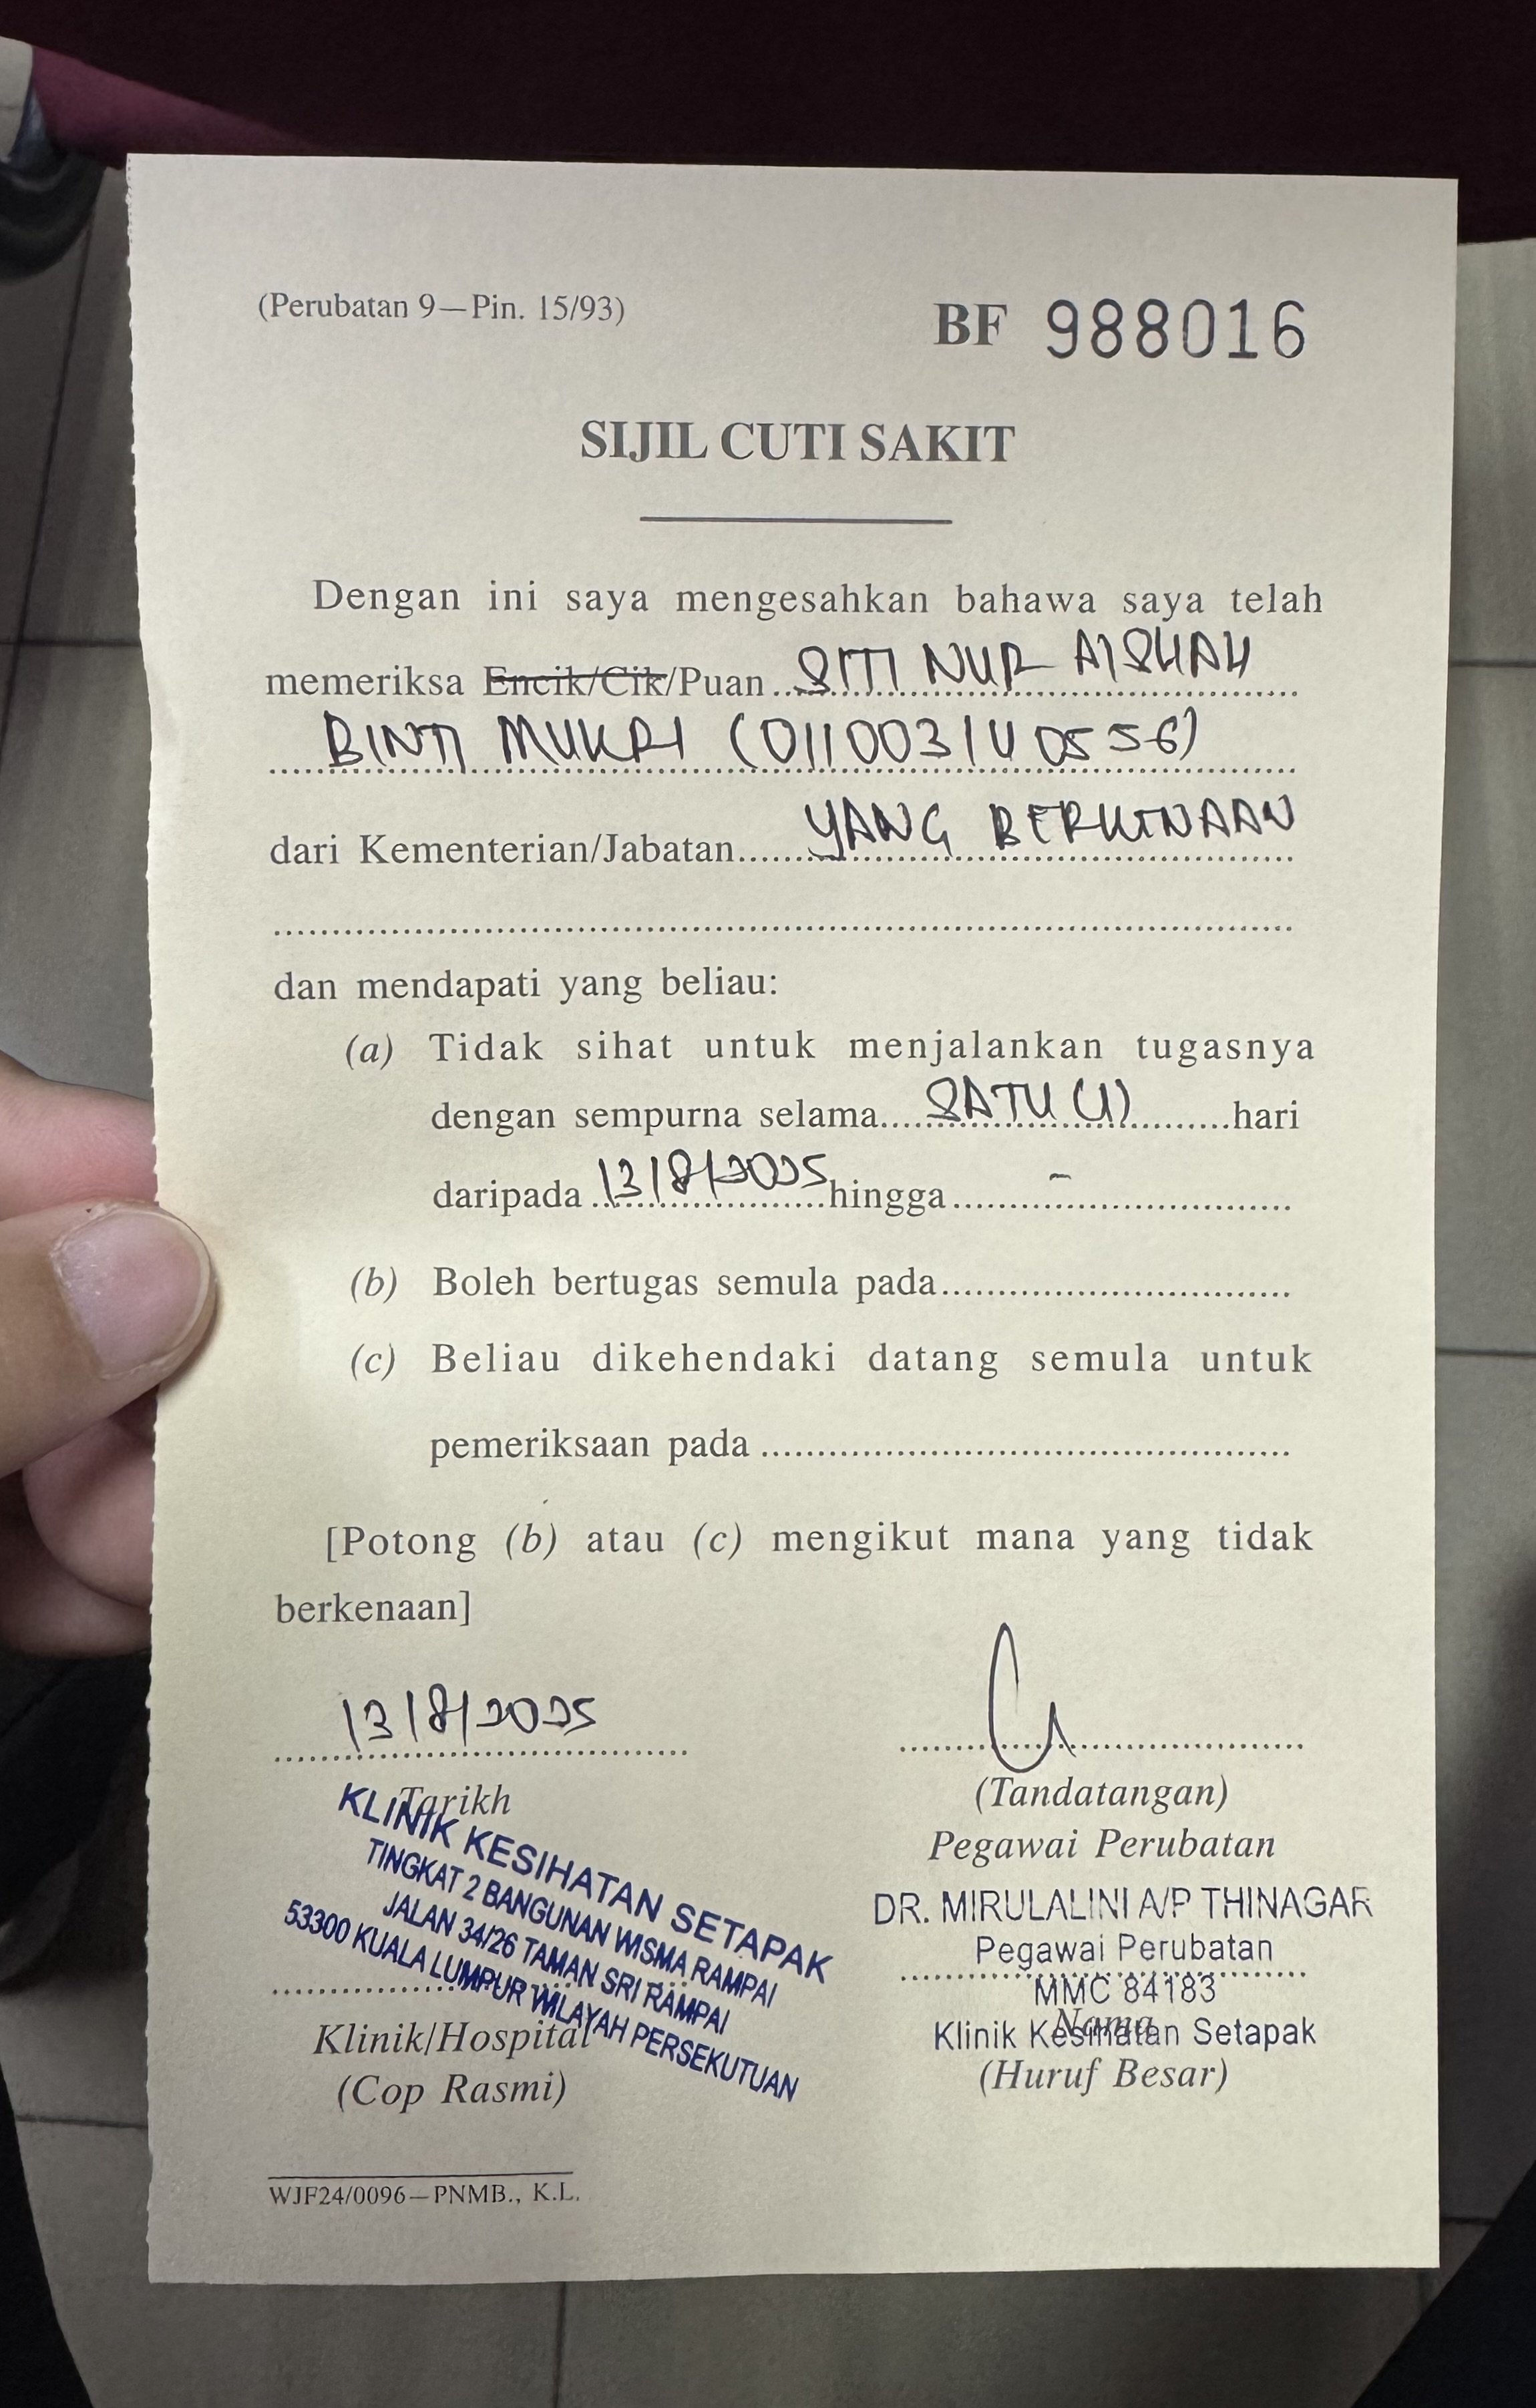 (Perubatan 9—Pin. 15/93)
BF 988016
SIJIL CUTI SAKIT
Dengan ini saya mengesahkan bahawa saya telah
memeriksa Encik/Cik/Puan SITI NUR AISHAH
BINTI MUKRI (011003140556)
dari Kementerian/Jabatan YANG BERKENAAN
dan mendapati yang beliau:
(a) Tidak sihat untuk menjalankan tugasnya
dengan sempurna selama SATU (1) hari
daripada 13/8/2025 hingga -
(b) Boleh bertugas semula pada
(c) Beliau dikehendaki datang semula untuk
pemeriksaan pada
[Potong (b) atau (c) mengikut mana yang tidak
berkenaan]
13/8/2025
Tarikh
KLINIK KESIHATAN SETAPAK
TINGKAT 2 BANGUNAN WISMA RAMPAI
JALAN 34/26 TAMAN SRI RAMPAI
53300 KUALA LUMPUR WILAYAH PERSEKUTUAN
Klinik/Hospital
(Cop Rasmi)
(Tandatangan)
Pegawai Perubatan
DR. MIRULALINI A/P THINAGAR
Pegawai Perubatan
MMC 84183
Nama
Klinik Kesihatan Setapak
(Huruf Besar)
WJF24/0096—PNMB., K.L.